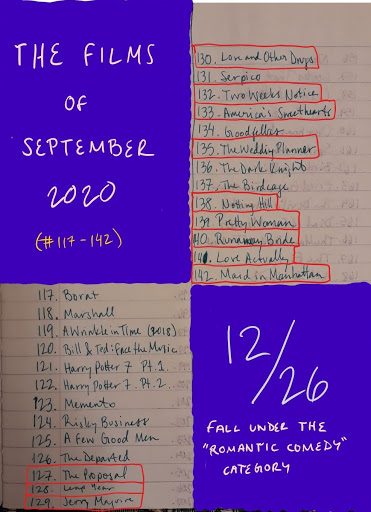 THE FILMS
OF
SEPTEMBER
2020
(#117-142)
130. Love and Other Drugs
131. Serpico
132. Two Weeks Notice
133. America's Sweethearts
134. Goodfellas
135. The Wedding Planner
136. The Dark Knight
137. The Birdcage
138. Notting Hill
139. Pretty Woman
140. Runaway Bride
141. Love Actually
142. Maid in Manhattan
117. Borat
118. Marshall
119. A Wrinkle in Time (2018)
120. Bill & Ted: Face the Music
121. Harry Potter 7 Pt. 1
122. Harry Potter 7 Pt. 2
123. Memento
124. Risky Business
125. A Few Good Men
126. The Departed
127. The Proposal
128. Leap Year
129. Jerry Maguire
12/26
FALL UNDER THE
"ROMANTIC COMEDY"
CATEGORY